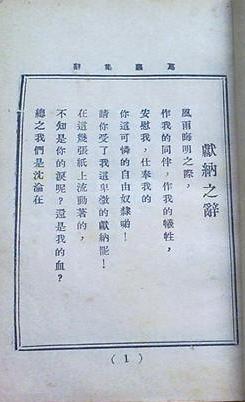 獻納之辭
風雨晦明之際，
作我的同伴，作我的犧牲，
安慰我，仕奉我的
你這可憐的自由奴隸喲！
請你受了我這卑微的獻納罷！
在這幾張紙上流動著的，
不知是你的淚呢？還是我的血？
總之我們是沈淪在
(1)